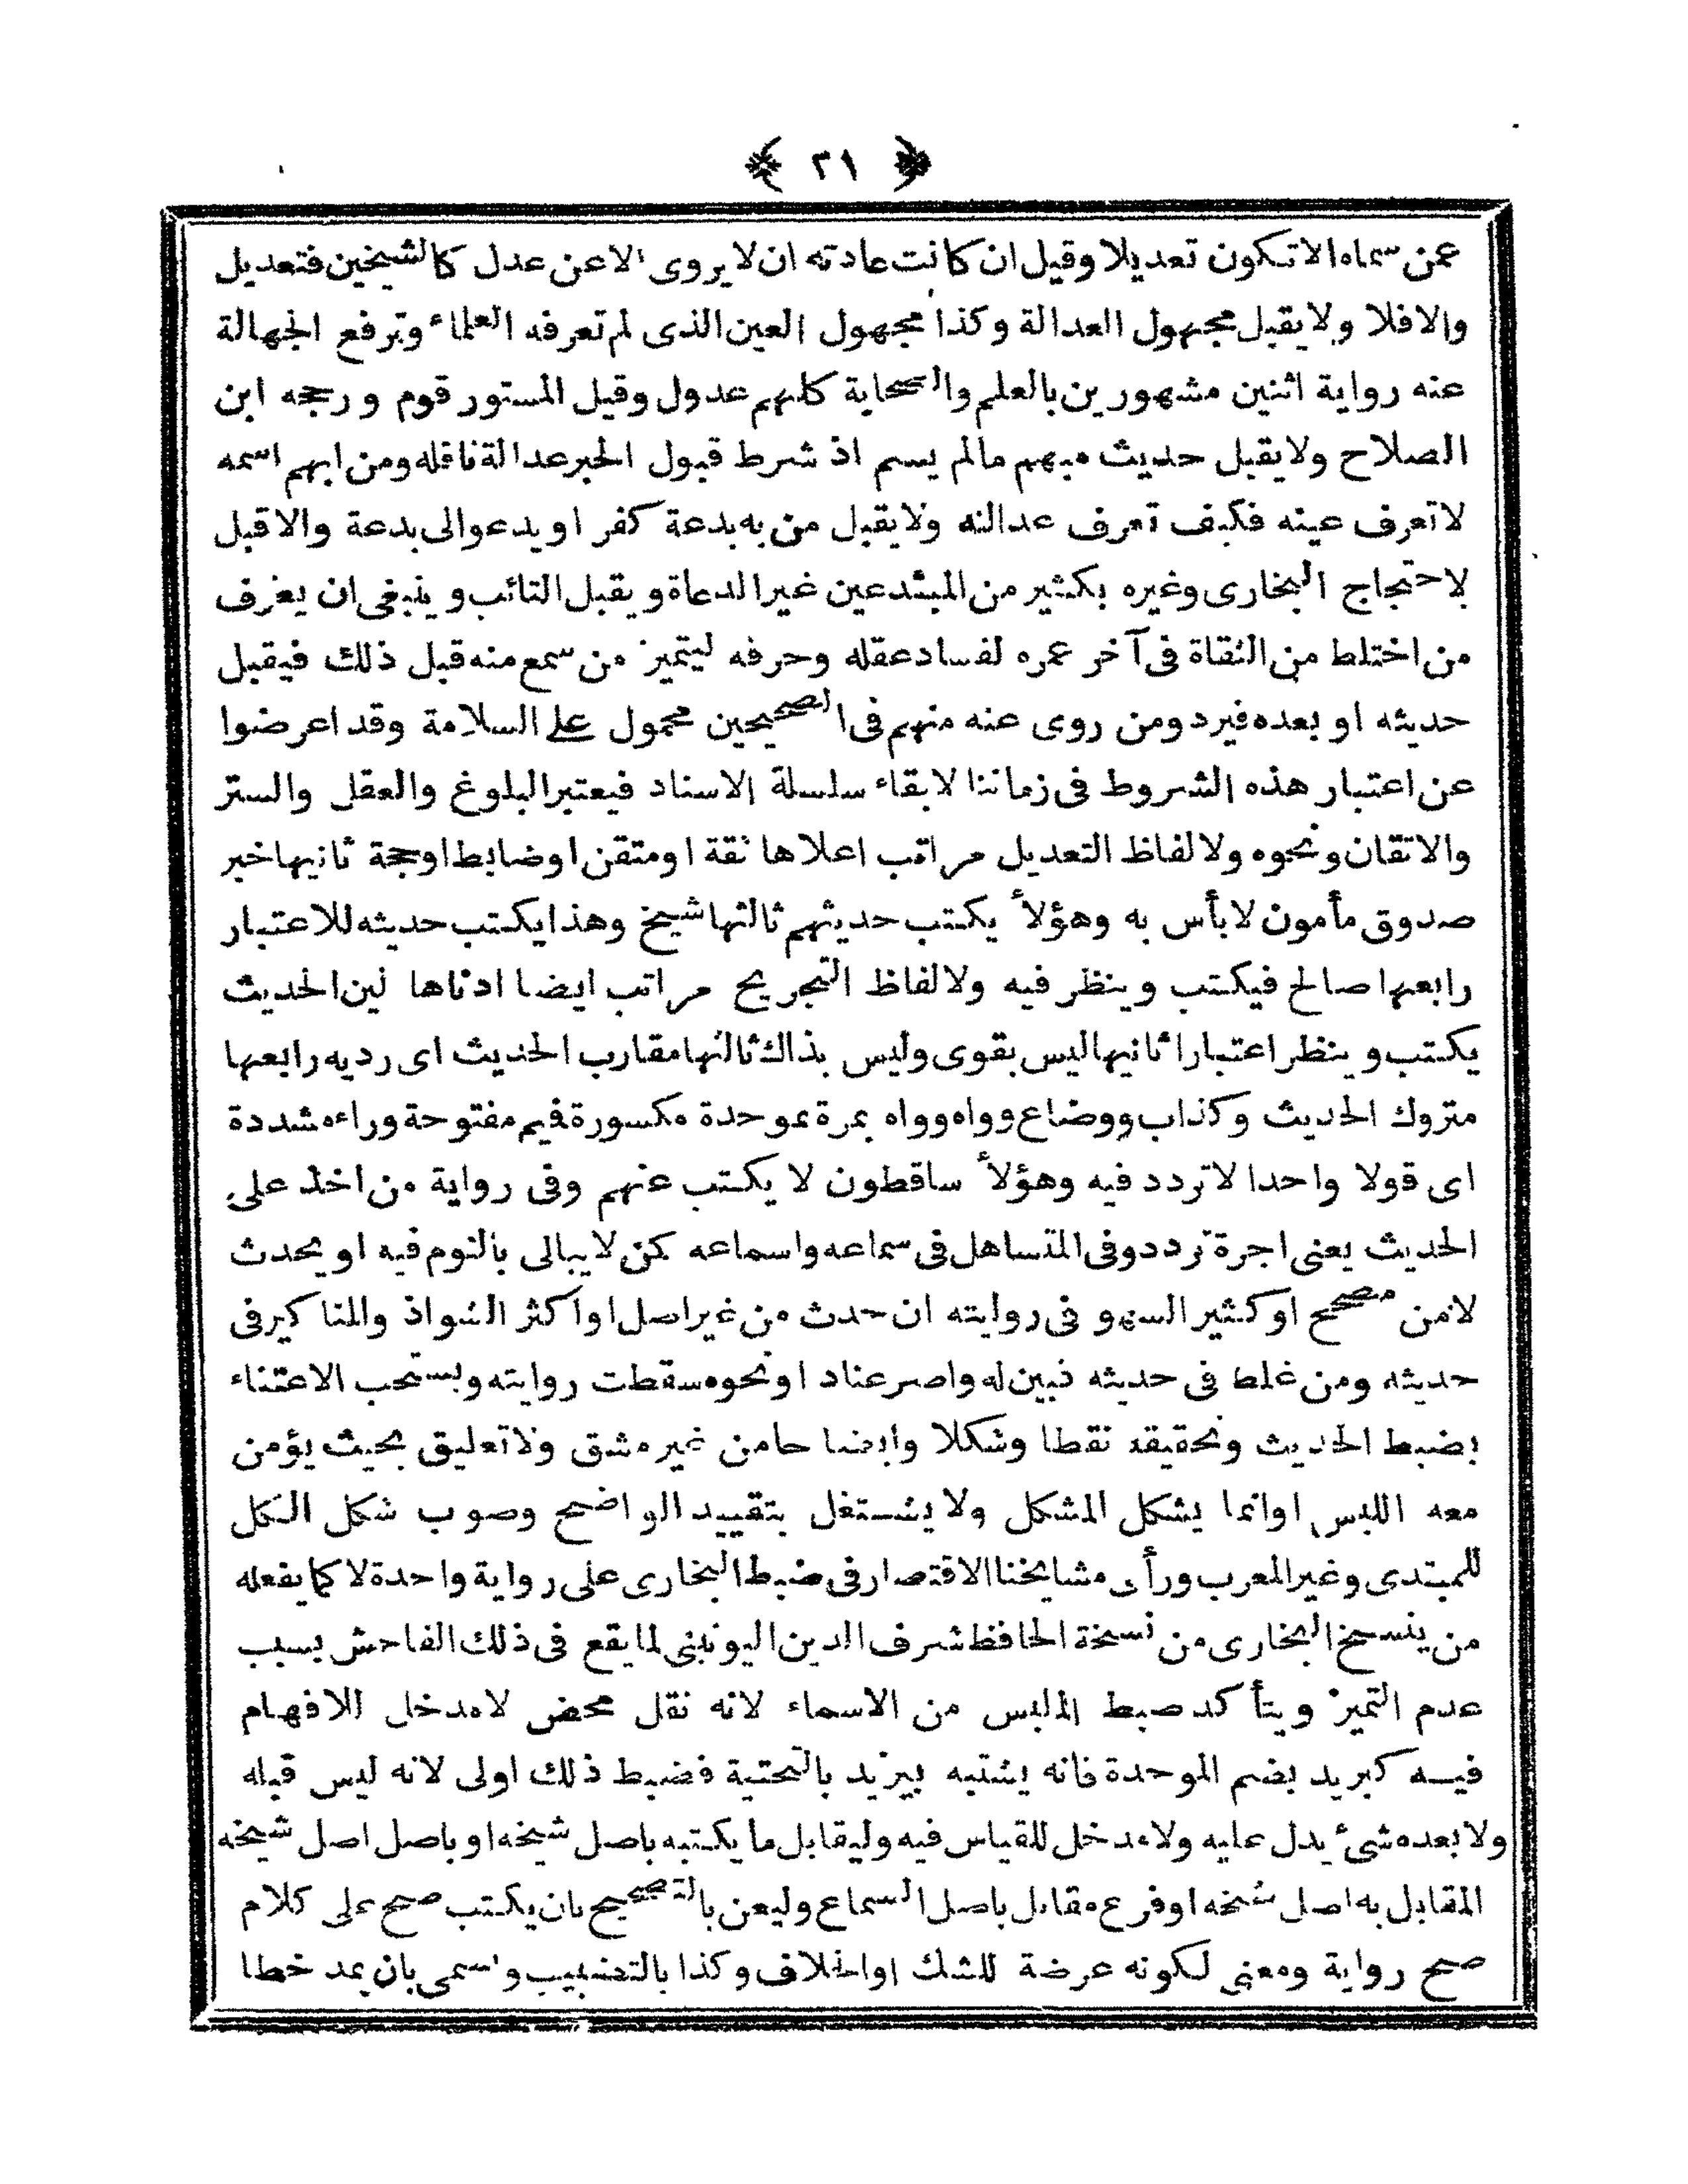 ﴿ ٣١ ﴾
عمن سماه الاتكون تعديلا وقيل ان كانت عادته ان لا يروى الا عن عدل كالشيخين فتعديل
والا فلا ولا يقبل مجهول العدالة وكذا مجهول العين الذى لم تعرفه العلماء وترفع الجهالة
عنه رواية اثنين مشهورين بالعلم والصحابة كلهم عدول وقيل المستور قوم ورجحه ابن
الصلاح ولا يقبل حديث مبهم مالم يسم اذ شرط قبول الخبر عدالة ناقله ومن ابهم اسمه
لا تعرف عينه فكيف تعرف عدالته ولا يقبل من به بدعة كفر او يدعو الى بدعة والا قبل
لاحتجاج البخارى وغيره بكثير من المبتدعين غير الدعاة ويقبل التائب وينبغى ان يعرف
من اختلط من الثقاة فى آخر عمره لفساد عقله وحرفه ليتميز من سمع منه قبل ذلك فيقبل
حديثه او بعده فيرد ومن روى عنه منهم فى الصحيحين محمول على السلامة وقد اعرضوا
عن اعتبار هذه الشروط فى زماننا لابقاء سلسلة الاسناد فيعتبر البلوغ والعقل والستر
والاتقان ونحوه ولالفاظ التعديل مراتب اعلاها ثقة او متقن او ضابط او حجة ثانيها خير
صدوق مأمون لا بأس به وهؤلأ يكتب حديثهم ثالثها شيخ وهذا يكتب حديثه للاعتبار
رابعها صالح فيكتب وينظر فيه ولالفاظ التجريح مراتب ايضا ادناها لين الحديث
يكتب وينظر اعتبارا ثانيها ليس بقوى وليس بذاك ثالثها مقارب الحديث اى رديه رابعها
متروك الحديث وكذاب ووضاع وواه وواه بمرة بموحدة مكسورة فميم مفتوحة وراء مشددة
اى قولا واحدا لا تردد فيه وهؤلأ ساقطون لا يكتب عنهم وفى رواية من اخذ على
الحديث يعنى اجرة تردد وفى المتساهل فى سماعه واسماعه كمن لا يبالى بالنوم فيه او يحدث
لا من مصحح او كثير السهو فى روايته ان حدث من غير اصل او اكثر الشواذ والمناكير فى
حديثه ومن غلط فى حديثه فبين له واصر عناد او نحوه سقطت روايته ويستحب الاعتناء
بضبط الحديث وتحقيقه نقطا وشكلا وايضاحا من غير مشق ولا تعليق بحيث يؤمن
معه اللبس او انما يشكل المشكل ولا يشتغل بتقييد الواضح وصوب شكل الكل
للمبتدى وغير المعرب ورأى مشايخنا الاقتصار فى ضبط البخارى على رواية واحدة لا كما يفعله
من ينسخ البخارى من نسخة الحافظ شرف الدين اليونينى لما يقع فى ذلك الفاحش بسبب
عدم التميز ويتأكد ضبط الملبس من الاسماء لانه نقل محض لامدخل للافهام
فيه كبريد بضم الموحدة فانه يشتبه بيزيد بالتحتية فضبط ذلك اولى لانه ليس قبله
ولا بعده شئ يدل عليه ولا مدخل للقياس فيه وليقابل ما يكتبه باصل شيخه او باصل اصل شيخه
المقابل به اصل شيخه او فرع مقابل باصل السماع وليعن بالتصحيح بان يكتب صح على كلام
صح رواية ومعنى لكونه عرضة للشك او الخلاف وكذا بالتضبيب ويسمى بان يمد خطا